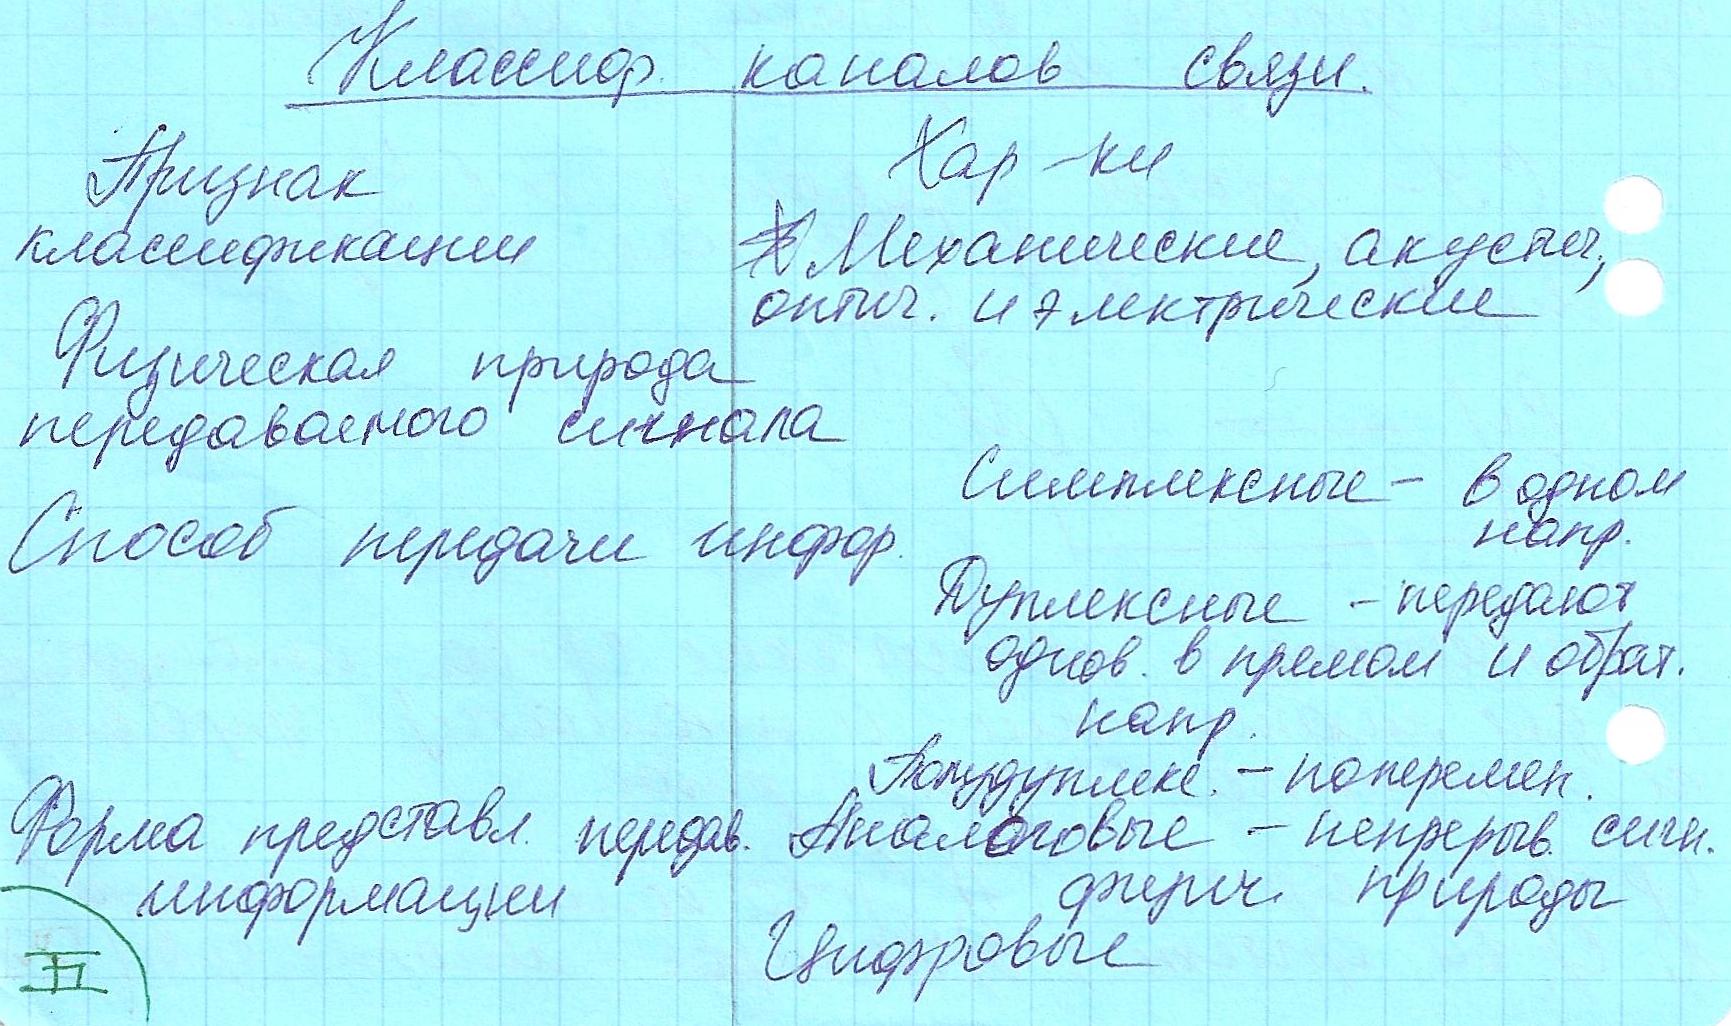 Классиф. каналов связи.
Признак
классификации
Хар-ки
Механические, акустич.,
оптич. и электрические
Физическая природа
передаваемого сигнала
Способ передачи инфор.
Симплексные - в одном
напр.
Дуплексные - передают
однов. в прямом и обрат.
напр.
Полудуплекс. - поперемен.
Форма представл. передав.
информации
Аналоговые - непрерыв. сигн.
физич. природы
Цифровые